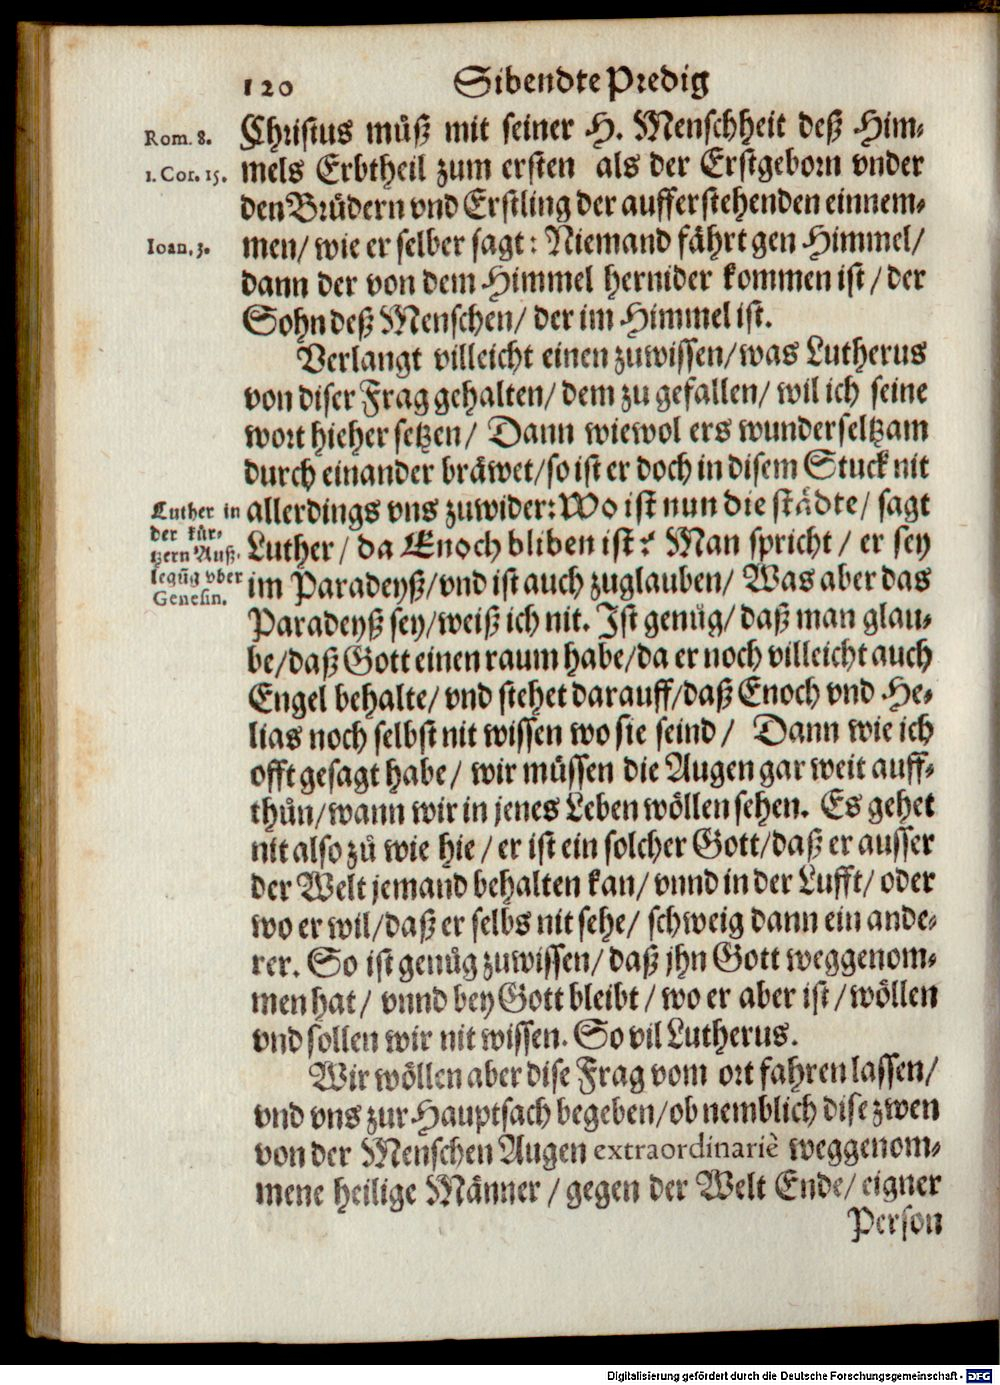 120 Sibendte Predig
Rom. 8. Christus müß mit seiner H. Menschheit deß Him-
1. Cor. 15. mels Erbtheil zum ersten als der Erstgeborn vnder
den Brüdern vnd Erstling der aufferstehenden einnem-
Ioan. 3. men/ wie er selber sagt: Niemand fährt gen Himmel/
dann der von dem Himmel hernider kommen ist/ der
Sohn deß Menschen/ der im Himmel ist.
Verlangt villeicht einen zuwissen/ was Lutherus
von diser Frag gehalten/ dem zu gefallen/ wil ich seine
wort hieher setzen/ Dann wiewol ers wunderseltzam
durch einander bräwet/ so ist er doch in disem Stuck nit
allerdings vns zuwider: Wo ist nun die städte/ sagt
Luther/ da Enoch bliben ist? Man spricht/ er sey
im Paradeyß/ vnd ist auch zuglauben/ Was aber das
Paradeyß sey/ weiß ich nit. Ist genůg/ daß man glau-
be/ daß Gott einen raum habe/ da er noch villeicht auch
Engel behalte/ vnd stehet darauff/ daß Enoch vnd He-
lias noch selbst nit wissen wo sie seind/ Dann wie ich
offt gesagt habe/ wir müssen die Augen gar weit auff-
thůn/ wann wir in jenes Leben wöllen sehen. Es gehet
nit also zů wie hie/ er ist ein solcher Gott/ daß er ausser
der Welt jemand behalten kan/ vnnd in der Lufft/ oder
wo er wil/ daß er selbs nit sehe/ schweig dann ein ande-
rer. So ist genůg zuwissen/ daß jhn Gott weggenom-
men hat/ vnnd bey Gott bleibt/ wo er aber ist/ wöllen
vnd sollen wir nit wissen. So vil Lutherus.
Luther in
der kür-
tzern Auß-
legūg vber
Genesin.
Wir wöllen aber dise Frag vom ort fahren lassen/
vnd vns zur Hauptsach begeben/ ob nemblich dise zwen
von der Menschen Augen extraordinariè weggenom-
mene heilige Männer/ gegen der Welt Ende/ eigner
Person
Digitalisierung gefördert durch die Deutsche Forschungsgemeinschaft - DFG